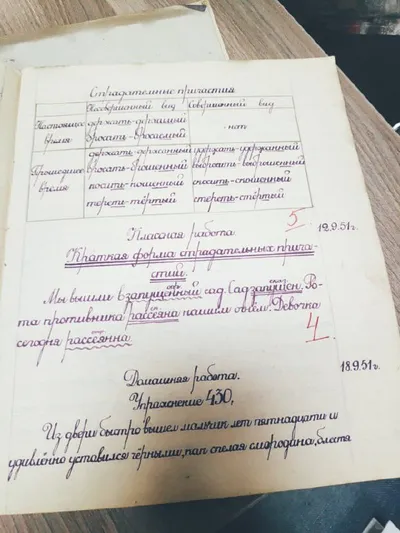 Страдательные причастия
Несовершенный вид Совершенный вид
Настоящее время держать-держимый
бросать-бросаемый - нет
Прошедшее время держать-держанный удержать-удержанный
бросать-брошенный выбросить-выброшенный
носить-ношенный сносить-сношенный
тереть-тёртый стереть-стёртый
5
12.9.51г.
Классная работа.
Краткая форма страдательных прича-
стий.
Мы вышли в запущенный сад. Сад запущен. Ро-
та противника рассеяна нашим огнём. Девочка
сегодня рассеянна.
4
18.9.51г.
Домашняя работа.
Упражнение 430.
Из двери быстро вышел мальчик лет пятнадцати и
удивлённо уставился чёрными, как спелая смородина, блестя